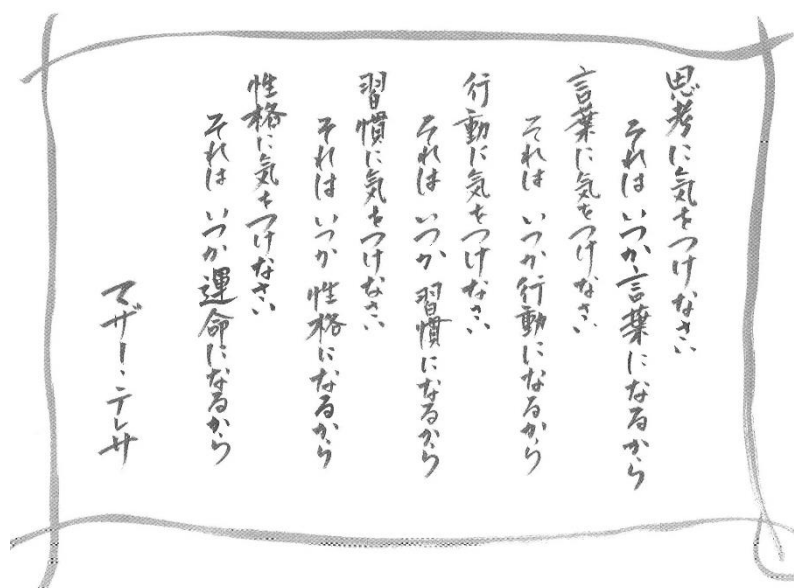 思考に気をつけなさい
それはいつか言葉になるから
言葉に気をつけなさい
それは いつか行動になるから
行動に気をつけなさい
それは いつか 習慣になるから
習慣に気をつけなさい
それは いつか 性格になるから
性格に気をつけなさい
それは いつか運命になるから
マザー・テレサ